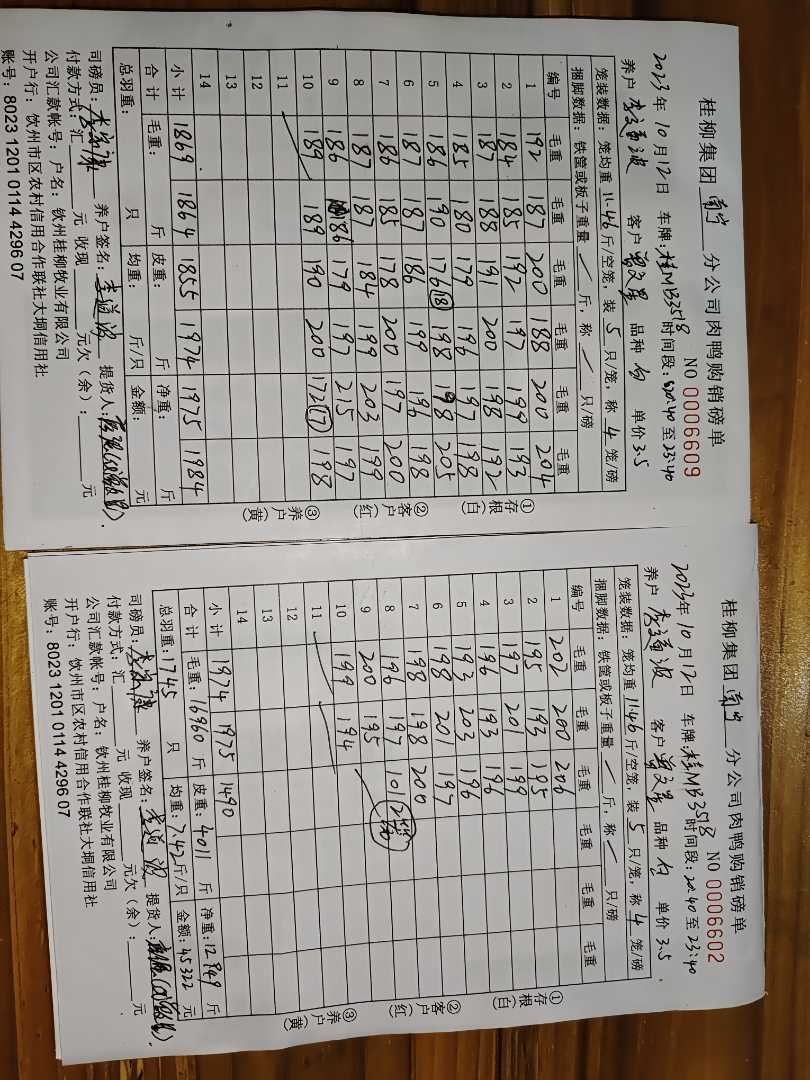 桂柳集团 南宁 分公司肉鸭购销磅单
2023年10月12日 车牌:桂MB3518 时间段:22:40至23:40 NO 0006609
养户 客户 品种 白 单价 3.5
笼装数据: 笼均重 11.46 斤/空笼, 装 5 只/笼, 称 4 笼/磅
捆脚数据: 铁筐或板子重量 / 斤, 称 / 只/磅
编号 毛重 毛重 毛重 毛重 毛重 毛重
1 192 187 200 188 200 204
2 184 185 192 197 199 193
3 187 188 191 200 198 192
4 185 180 179 196 197 198
5 186 190 176(18) 198 198 205
6 187 187 186 199 196 198
7 186 185 178 200 197 200
8 187 187 184 199 203 199
9 186 186 179 197 215 197
10 189 189 190 200 172(17) 198
11
12
13
14
小计 1869 1864 1855 1974 1975 1984
合计 毛重: 斤 皮重: 斤 净重: 斤
总羽重: 只 均重: 斤/只 金额: 元
司磅员: 养户签名: 提货人:
付款方式: 汇 元 收现 元 元欠(余): 元
公司汇款帐号: 户名: 钦州桂柳牧业有限公司
开户行: 钦州市区农村信用合作联社大垌信用社
账号: 8023 1201 0114 4296 07
①存根(白) ②客户(红) ③养户(黄)
桂柳集团 南宁 分公司肉鸭购销磅单
2023年10月12日 车牌:桂MB3518 时间段:22:40至23:40 NO 0006602
养户 客户 品种 白 单价 3.5
笼装数据: 笼均重 11.46 斤/空笼, 装 5 只/笼, 称 4 笼/磅
捆脚数据: 铁筐或板子重量 / 斤, 称 / 只/磅
编号 毛重 毛重 毛重 毛重 毛重 毛重
1 202 200 206
2 195 193 195
3 197 201 199
4 196 193 196
5 193 203 196
6 198 201 197
7 198 198 200
8 196 197 101
9 200 195
10 199 194
11
12
13
14
小计 1974 1975 1490
合计 毛重: 16960 斤 皮重: 4011 斤 净重: 12949 斤
总羽重: 1745 只 均重: 7.42 斤/只 金额: 45322 元
司磅员: 养户签名: 提货人:
付款方式: 汇 元 收现 元 元欠(余): 元
公司汇款帐号: 户名: 钦州桂柳牧业有限公司
开户行: 钦州市区农村信用合作联社大垌信用社
账号: 8023 1201 0114 4296 07
①存根(白) ②客户(红) ③养户(黄)